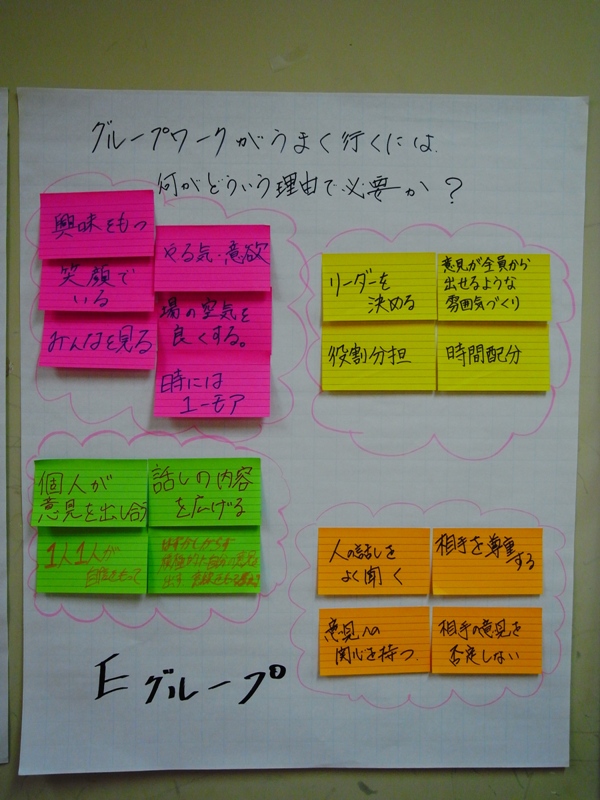 グループワークがうまく行くには
何がどういう理由で必要か?
興味をもつ
笑顔で
いる
みんなを見る
やる気・意欲
場の空気を
良くする。
時には
ユーモア
リーダーを
決める
意見が全員から
出せるような
雰囲気づくり
役割分担
時間配分
個人が
意見を出し合う
話しの内容
を広げる
1人1人が
自信をもって
はずかしがらず
出す
人の話しを
よく聞く
相手を尊重
する
意見への
関心を持つ
相手の意見を
否定しない
Eグループ